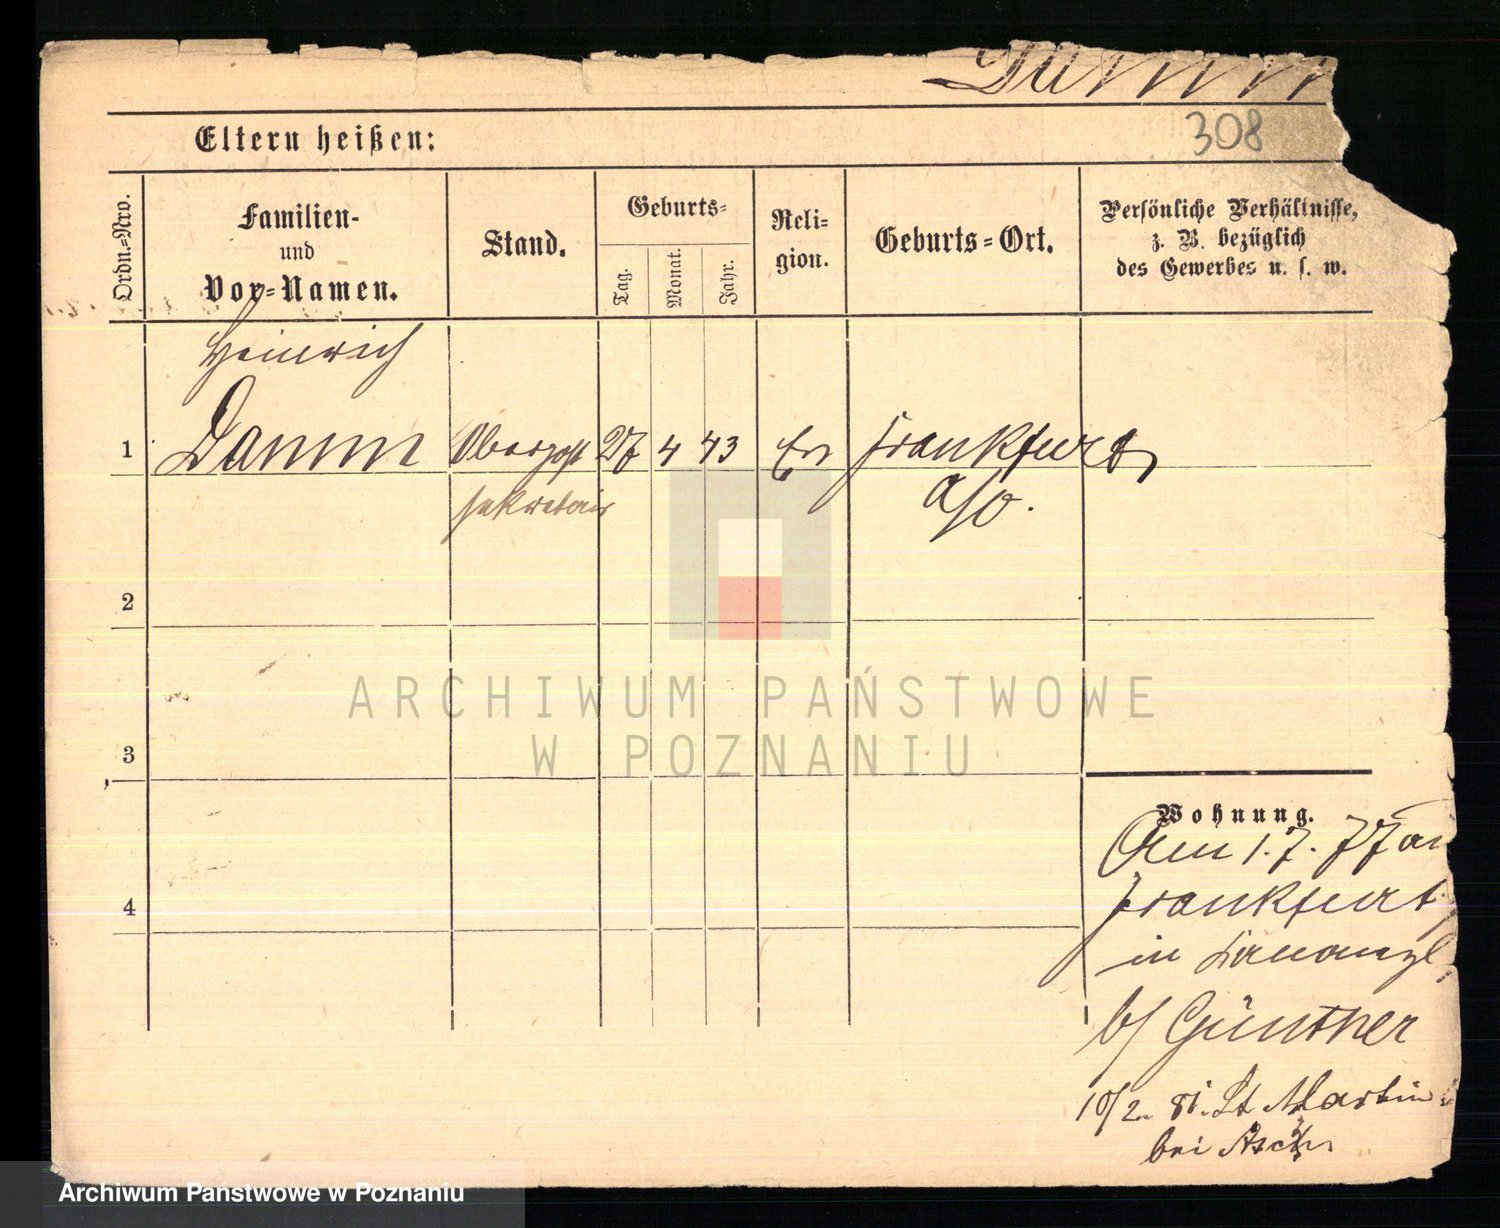 Damm
308
Eltern heißen:
Ordn.-Nro.
Familien-
und
Vor-Namen.
Stand.
Geburts-
Tag.
Monat.
Jahr.
Reli-
gion.
Geburts-Ort.
Persönliche Verhältnisse,
z. B. bezüglich
des Gewerbes u. s. w.
Heinrich
1 Damm Oberpost 4 43 Ev Frankfurt
sekretair a/O.
2
3
4
Wohnung.
1.7.77 an
Frankfurt
in
b/ Günther
10/2. 81. St Martin
bei
ARCHIWUM PAŃSTWOWE
W POZNANIU
Archiwum Państwowe w Poznaniu